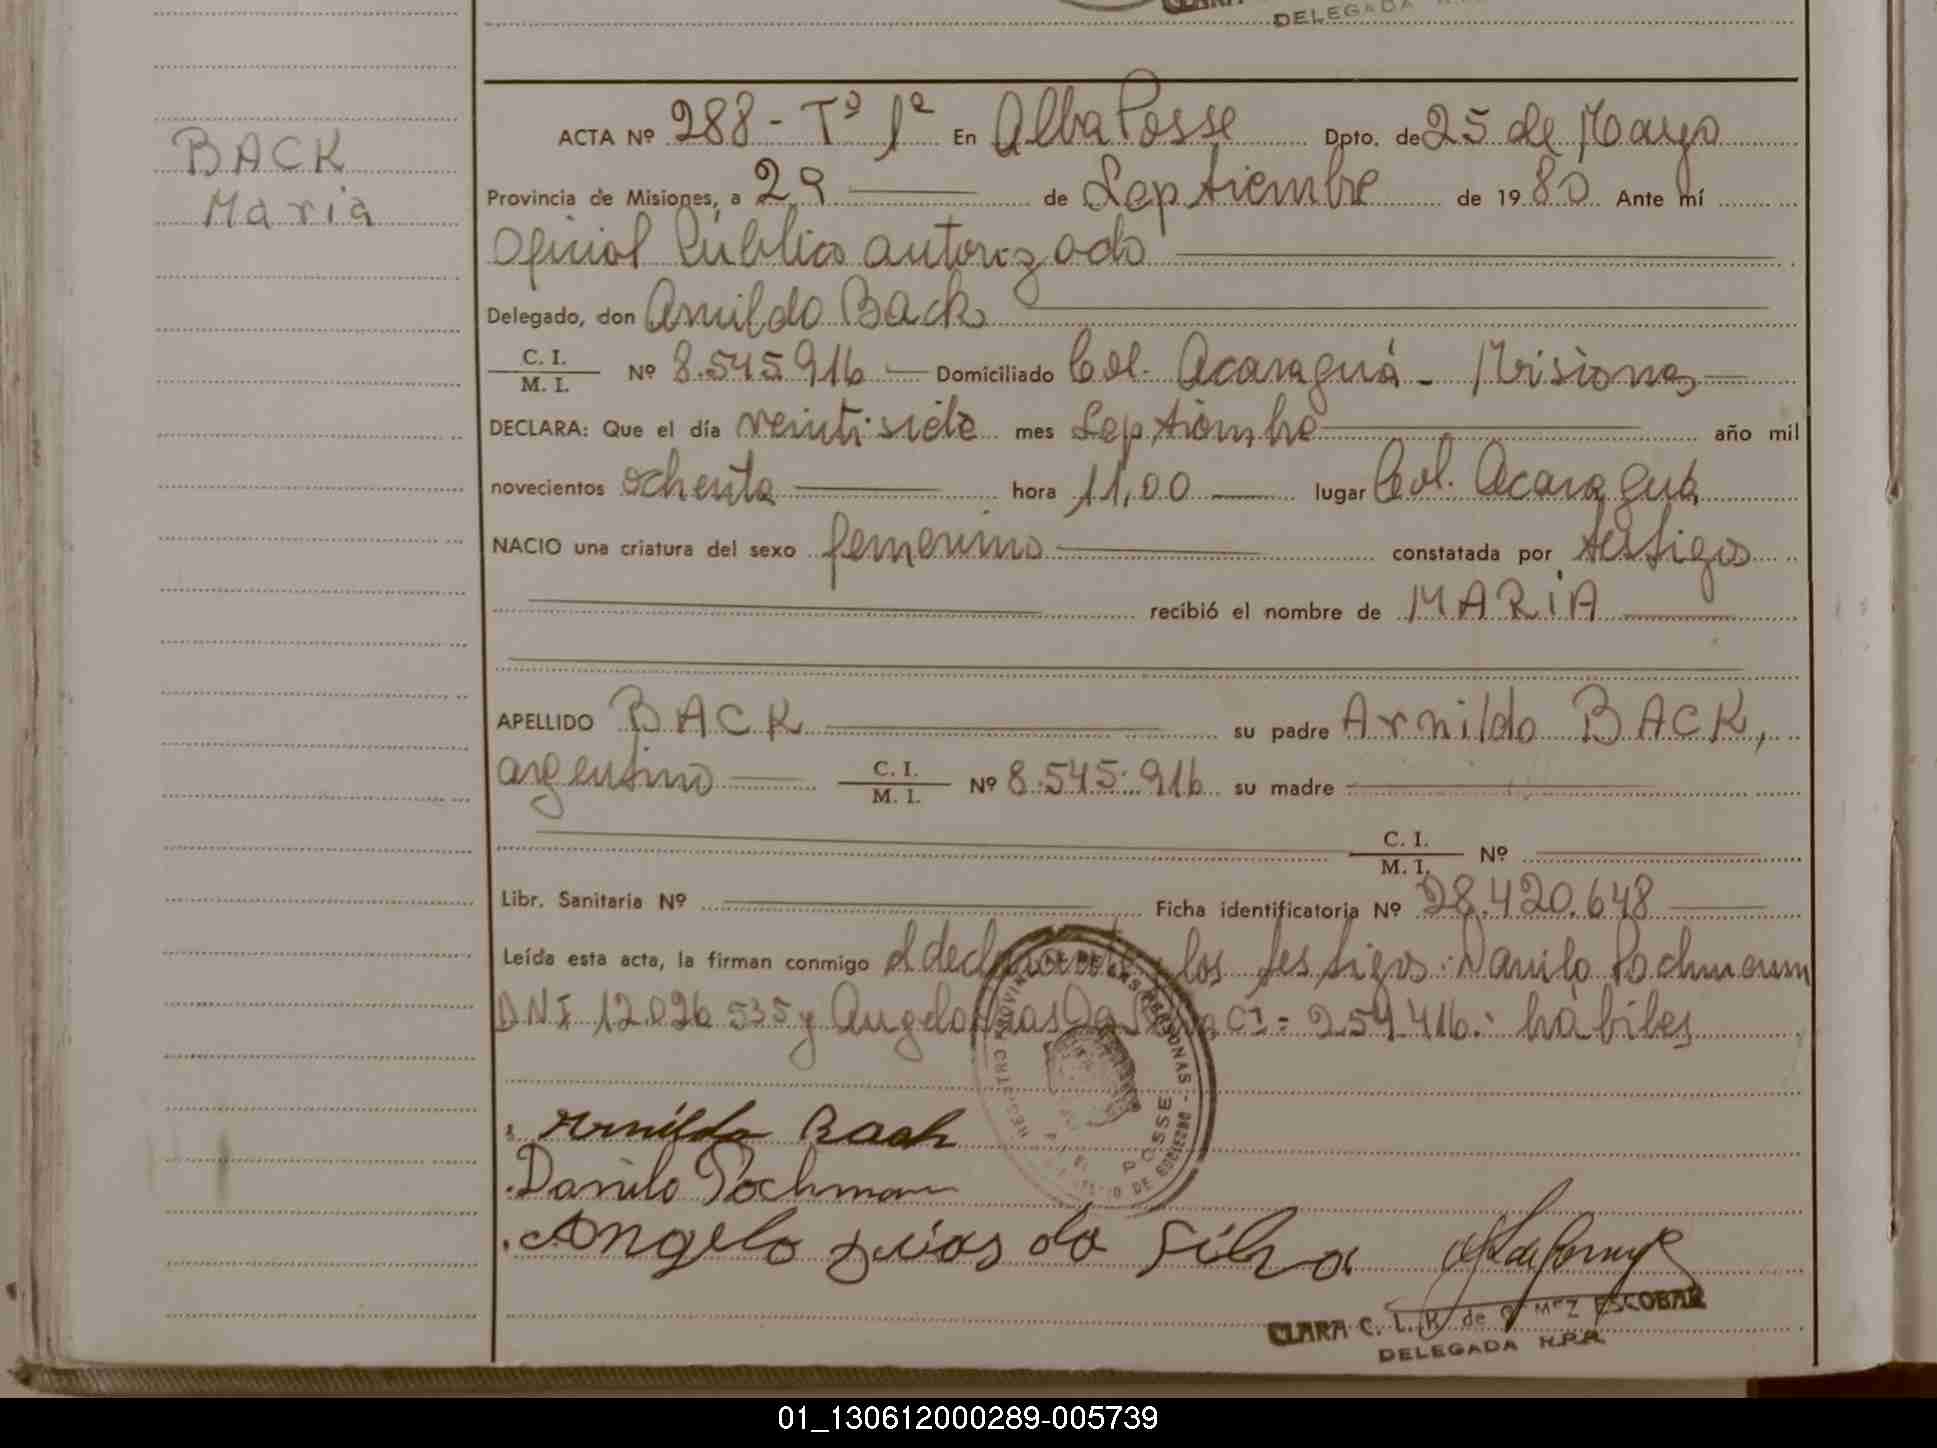 DELEGADA
BACK
Maria
ACTA Nº 288 - Tº 1º En Alba Posse Dpto. de 25 de Mayo
Provincia de Misiones, a 29 de Septiembre de 1980 Ante mí
Oficial Público autorizado
Delegado, don Arnildo Back
C. I. / M. I. Nº 8.545.916 Domiciliado Col. Acaraguá - Misiones
DECLARA: Que el día veintisiete mes Septiembre año mil
novecientos ochenta hora 11,00 lugar Col. Acaraguá
NACIO una criatura del sexo femenino constatada por testigos
recibió el nombre de MARIA
APELLIDO BACK su padre Arnildo BACK,
argentino C. I. / M. I. Nº 8.545.916 su madre
C. I. / M. I. Nº
Libr. Sanitaria Nº Ficha identificatoria Nº 28.420.648
Leída esta acta, la firman conmigo el declarante y los testigos: Danilo Pochmann
DNI 12.026.535 y Angelo Dias Da Silva CI= 254.416.- hábiles
Arnildo Back
Danilo Pochman
Angelo Dias da Silva
CLARA C. L. K. de GOMEZ ESCOBAR
DELEGADA R.P.P.
01_130612000289-005739